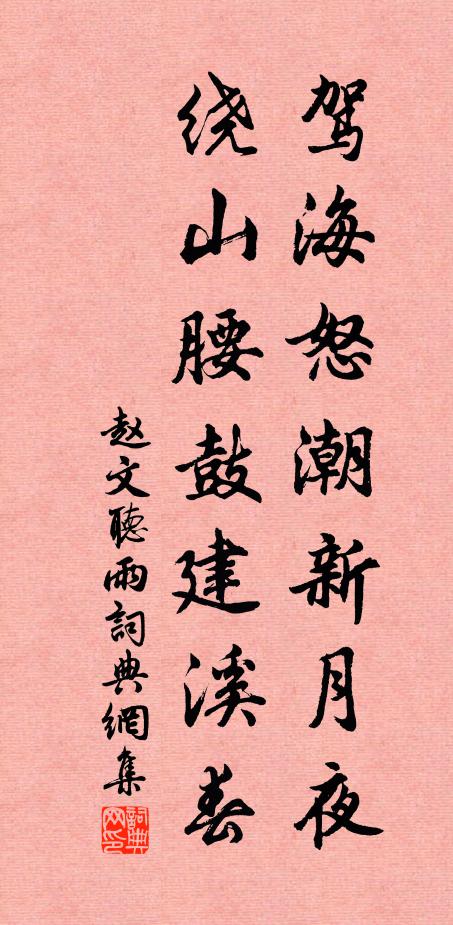 驾海怒潮新月夜
绕山腰鼓建溪春
赵文聽雨詞典網集
詞典网印